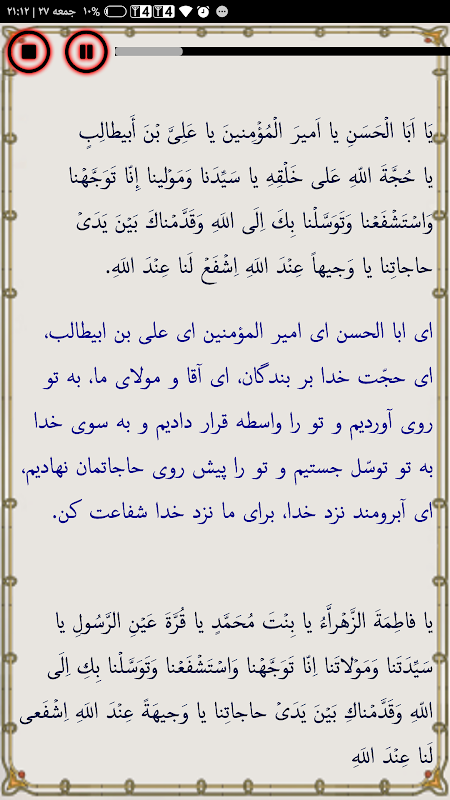 ۲۱:۱۲ | جمعه ۲۷ ۱۰% 4 4
يَا اَبَا الْحَسَنِ يا اَميرَ الْمُؤْمِنينَ يا عَلِىَّ بْنَ أَبيطالِبٍ
يا حُجَّةَ اللّهِ عَلى خَلْقِهِ يا سَيِّدَنا وَمَوْلينا اِنّا تَوَجَّهْنا
وَاسْتَشْفَعْنا وَتَوَسَّلْنا بِكَ اِلَى اللهِ وَقَدَّمْناكَ بَيْنَ يَدَىْ
حاجاتِنا يا وَجيهاً عِنْدَ اللهِ اِشْفَعْ لَنا عِنْدَ اللهِ.
ای ابا الحسن ای امیر المؤمنین ای علی بن ابیطالب،
ای حجّت خدا بر بندگان، ای آقا و مولای ما، به تو
روی آوردیم و تو را واسطه قرار دادیم و به سوی خدا
به تو توسّل جستیم و تو را پیش روی حاجاتمان نهادیم،
ای آبرومند نزد خدا، برای ما نزد خدا شفاعت کن.
يا فاطِمَةَ الزَّهْراَّءُ يا بِنْتَ مُحَمَّدٍ يا قُرَّةَ عَيْنِ الرَّسُولِ يا
سَيِّدَتَنا وَمَوْلاتَنا اِنّا تَوَجَّهْنا وَاسْتَشْفَعْنا وَتَوَسَّلْنا بِكِ اِلَى
اللّهِ وَقَدَّمْناكِ بَيْنَ يَدَىْ حاجاتِنا يا وَجيهَةً عِنْدَ اللهِ اِشْفَعى
لَنا عِنْدَ اللهِ